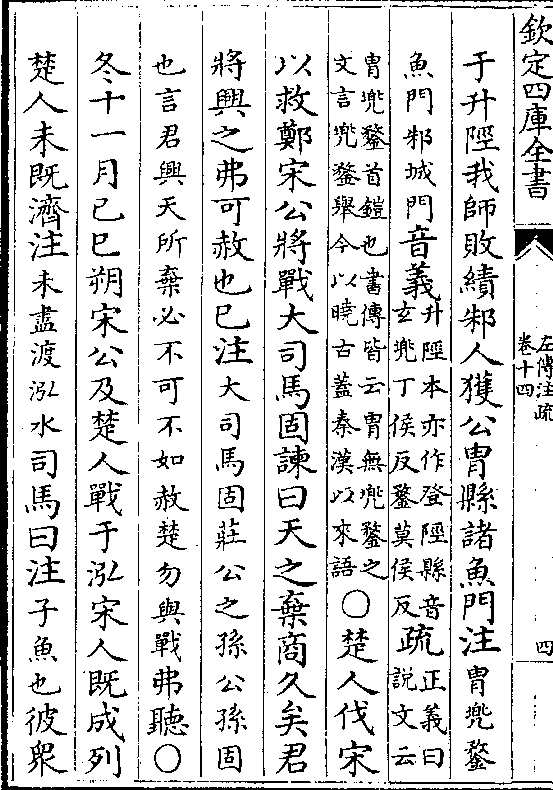 欽定四庫全書
左傳注疏
卷十四
四
于升陘我師敗績邾人獲公胄縣諸魚門注胄兜鍪
魚門邾城門音義升陘本亦作登陘縣音
玄兜丁侯反鍪莫侯反疏正義曰
說文云
胄兜鍪首鎧也書傳皆云胄無兜鍪之
文言兜鍪舉今以曉古蓋秦漢以來語〇楚人伐宋
以救鄭宋公將戰大司馬固諫曰天之棄商久矣君
將興之弗可赦也已注大司馬固莊公之孫公孫固
也言君興天所棄必不可不如赦楚勿與戰弗聽〇
冬十一月己巳朔宋公及楚人戰于泓宋人既成列
楚人未既濟注未盡渡泓水司馬曰注子魚也彼衆